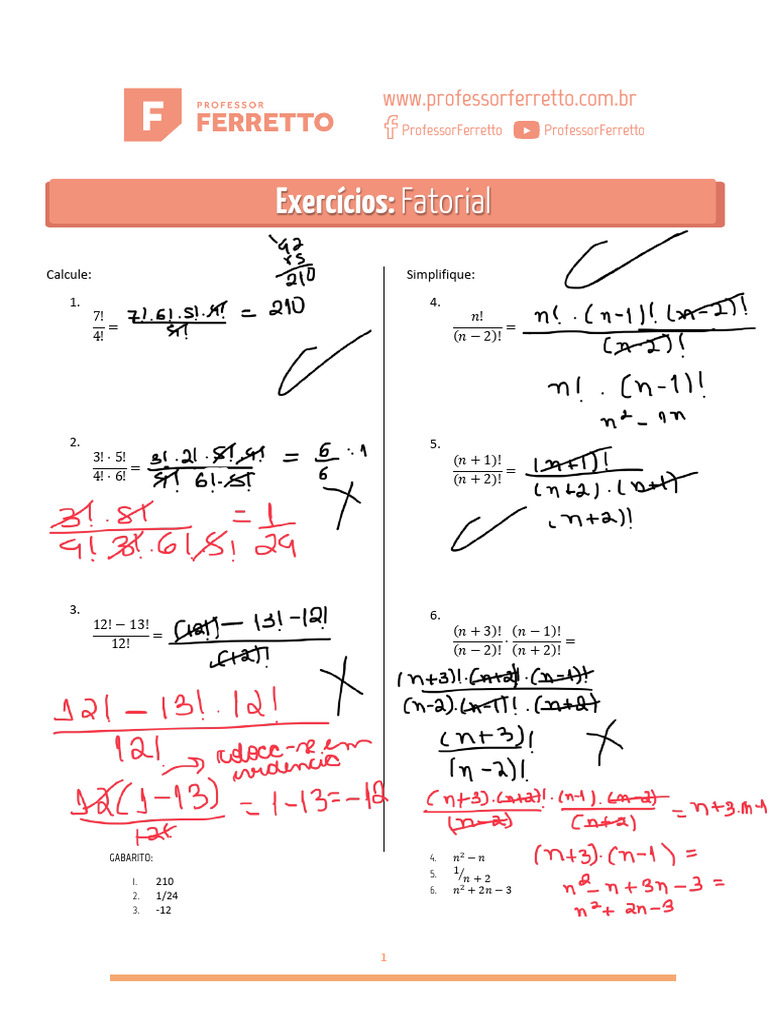 F
PROFESSOR
FERRETTO
www.professorferretto.com.br
ProfessorFerretto
ProfessorFerretto
Exercícios: Fatorial
Calcule:
42
x5
210
1.
7!/4! = 7!.6!.5!.4!/4! = 210
2.
3! · 5!/4! · 6! = 3!.2!.5!.4!/4! 6!.5! = 6/6 : 1
3!.5!/4!.3!.6!.5! = 1/24
3.
12! − 13!/12! = (12!) − 13! − 12!/(12)!
12! − 13!.12!/12!
coloca-se em
evidencia
12(1−13)/12! = 1−13=−12
GABARITO:
1. 210
2. 1/24
3. -12
Simplifique:
4.
n!/(n − 2)! = n!.(n−1)!.(n−2)!/(n−2)!
n!.(n−1)!
n² − 1n
5.
(n + 1)!/(n + 2)! = (n+1)!/(n+2).(n+1)
(n+2)!
6.
(n + 3)!/(n − 2)! · (n − 1)!/(n + 2)! =
(n+3)!.(n+2)!.(n−1)!/(n−2).(n−1)!.(n+2)
(n+3)!/(n−2)!
(n+3).(n+2)!/(n−2) . (n−1).(n−2)/(n+2) = n+3.n-1
(n+3).(n−1) =
n² − n + 3n − 3 =
n² + 2n − 3
4. n² − n
5. 1/n + 2
6. n² + 2n − 3
1